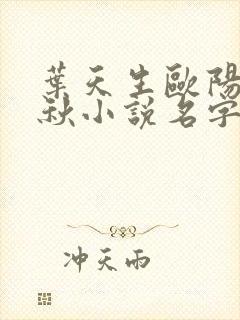 葉天生歐陽
秋小說名字
冲天雨